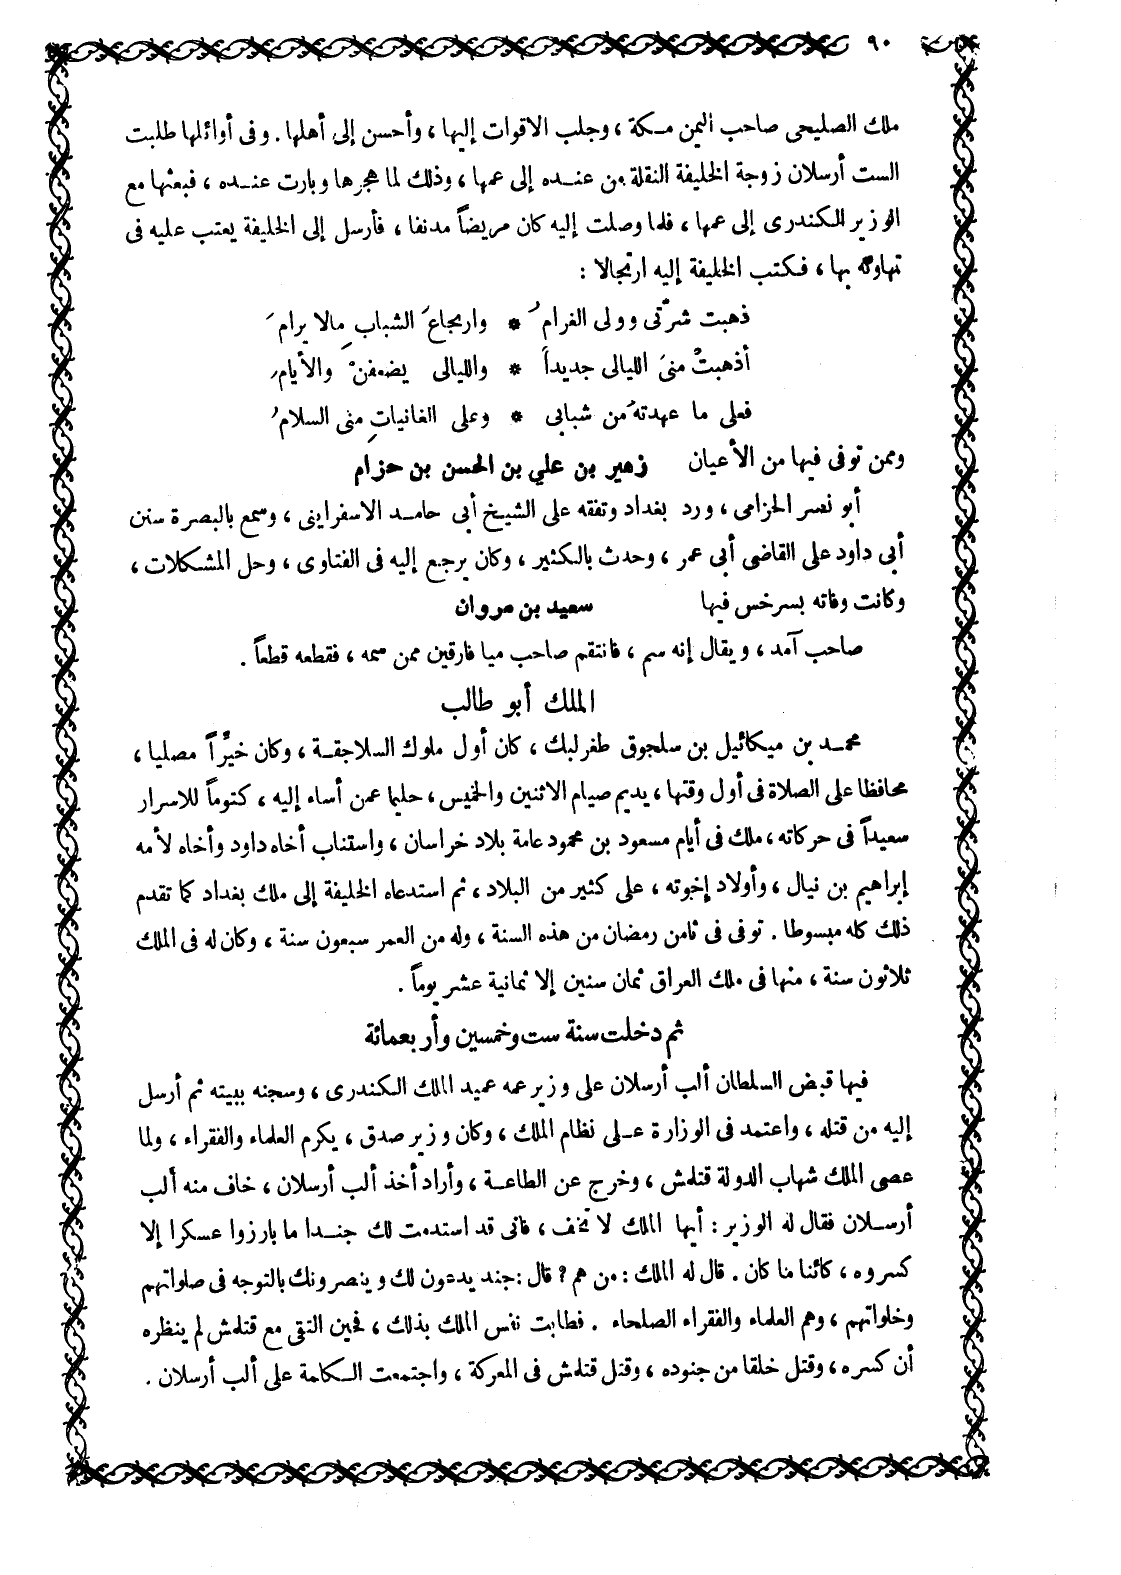 ٩٠
ملك الصليحى صاحب اليمن مكة ، وجلب الاقوات إليها ، وأحسن إلى أهلها . وفى أوائلها طلبت
الست أرسلان زوجة الخليفة النقلة من عنده إلى عمها ، وذلك لما هجرها وبارت عنده ، فبعثها مع
الوزير الكندرى إلى عمها ، فلما وصلت إليه كان مريضاً مدنفا ، فأرسل إلى الخليفة يعتب عليه فى
تهاونه بها ، فكتب الخليفة إليه ارتجالا :
ذهبت شرّتى وولى الغرامُ * وارتجاعَ الشبابِ مالا يرامَ
أذهبتْ منىَ الليالى جديداً * والليالى يضعفنْ والأيامِ
فعلى ما عهدتهُ من شبابى * وعلى الغانياتِ منى السلامُ
وممن توفى فيها من الأعيان زهير بن علي بن الحسن بن حزام
أبو نصر الحزامى ، ورد بغداد وتفقه على الشيخ أبى حامد الاسفراينى ، وسمع بالبصرة سنن
أبى داود على القاضى أبى عمر ، وحدث بالكثير ، وكان يرجع إليه فى الفتاوى ، وحل المشكلات ،
وكانت وفاته بسرخس فيها سعيد بن مروان
صاحب آمد ، ويقال إنه سم ، فانتقم صاحب ميا فارقين ممن سمه ، فقطعه قطعاً .
الملك أبو طالب
محمد بن ميكائيل بن سلجوق طغرلبك ، كان أول ملوك السلاجقة ، وكان خيِّراً مصليا ،
محافظا على الصلاة فى أول وقتها ، يديم صيام الاثنين والخميس ، حليما عمن أساء إليه ، كتوماً للاسرار
سعيداً فى حركاته ، ملك فى أيام مسعود بن محمود عامة بلاد خراسان ، واستناب أخاه داود وأخاه لأمه
إبراهيم بن نيال ، وأولاد إخوته ، على كثير من البلاد ، ثم استدعاه الخليفة إلى ملك بغداد كما تقدم
ذلك كله مبسوطا . توفى فى ثامن رمضان من هذه السنة ، وله من العمر سبعون سنة ، وكان له فى الملك
ثلاثون سنة ، منها فى ملك العراق ثمان سنين إلا ثمانية عشر يوماً .
ثم دخلت سنة ست وخمسين وأربعمائة
فيها قبض السلطان ألب أرسلان على وزير عمه عميد الملك الكندرى ، وسجنه ببيته ثم أرسل
إليه من قتله ، واعتمد فى الوزارة على نظام الملك ، وكان وزير صدق ، يكرم العلماء والفقراء ، ولما
عصى الملك شهاب الدولة قتلمش ، وخرج عن الطاعة ، وأراد أخذ ألب أرسلان ، خاف منه ألب
أرسلان فقال له الوزير : أيها الملك لا تخف ، فانى قد استدمت لك جندا ما بارزوا عسكرا إلا
كسروه ، كائنا ما كان . قال له الملك : من هم ? قال : جند يدعون لك وينصرونك بالتوجه فى صلواتهم
وخلواتهم ، وهم العلماء والفقراء الصلحاء . فطابت نفس الملك بذلك ، فحين التقى مع قتلمش لم ينظره
أن كسره ، وقتل خلقا من جنوده ، وقتل قتلمش فى المعركة ، واجتمعت الكلمة على ألب أرسلان .